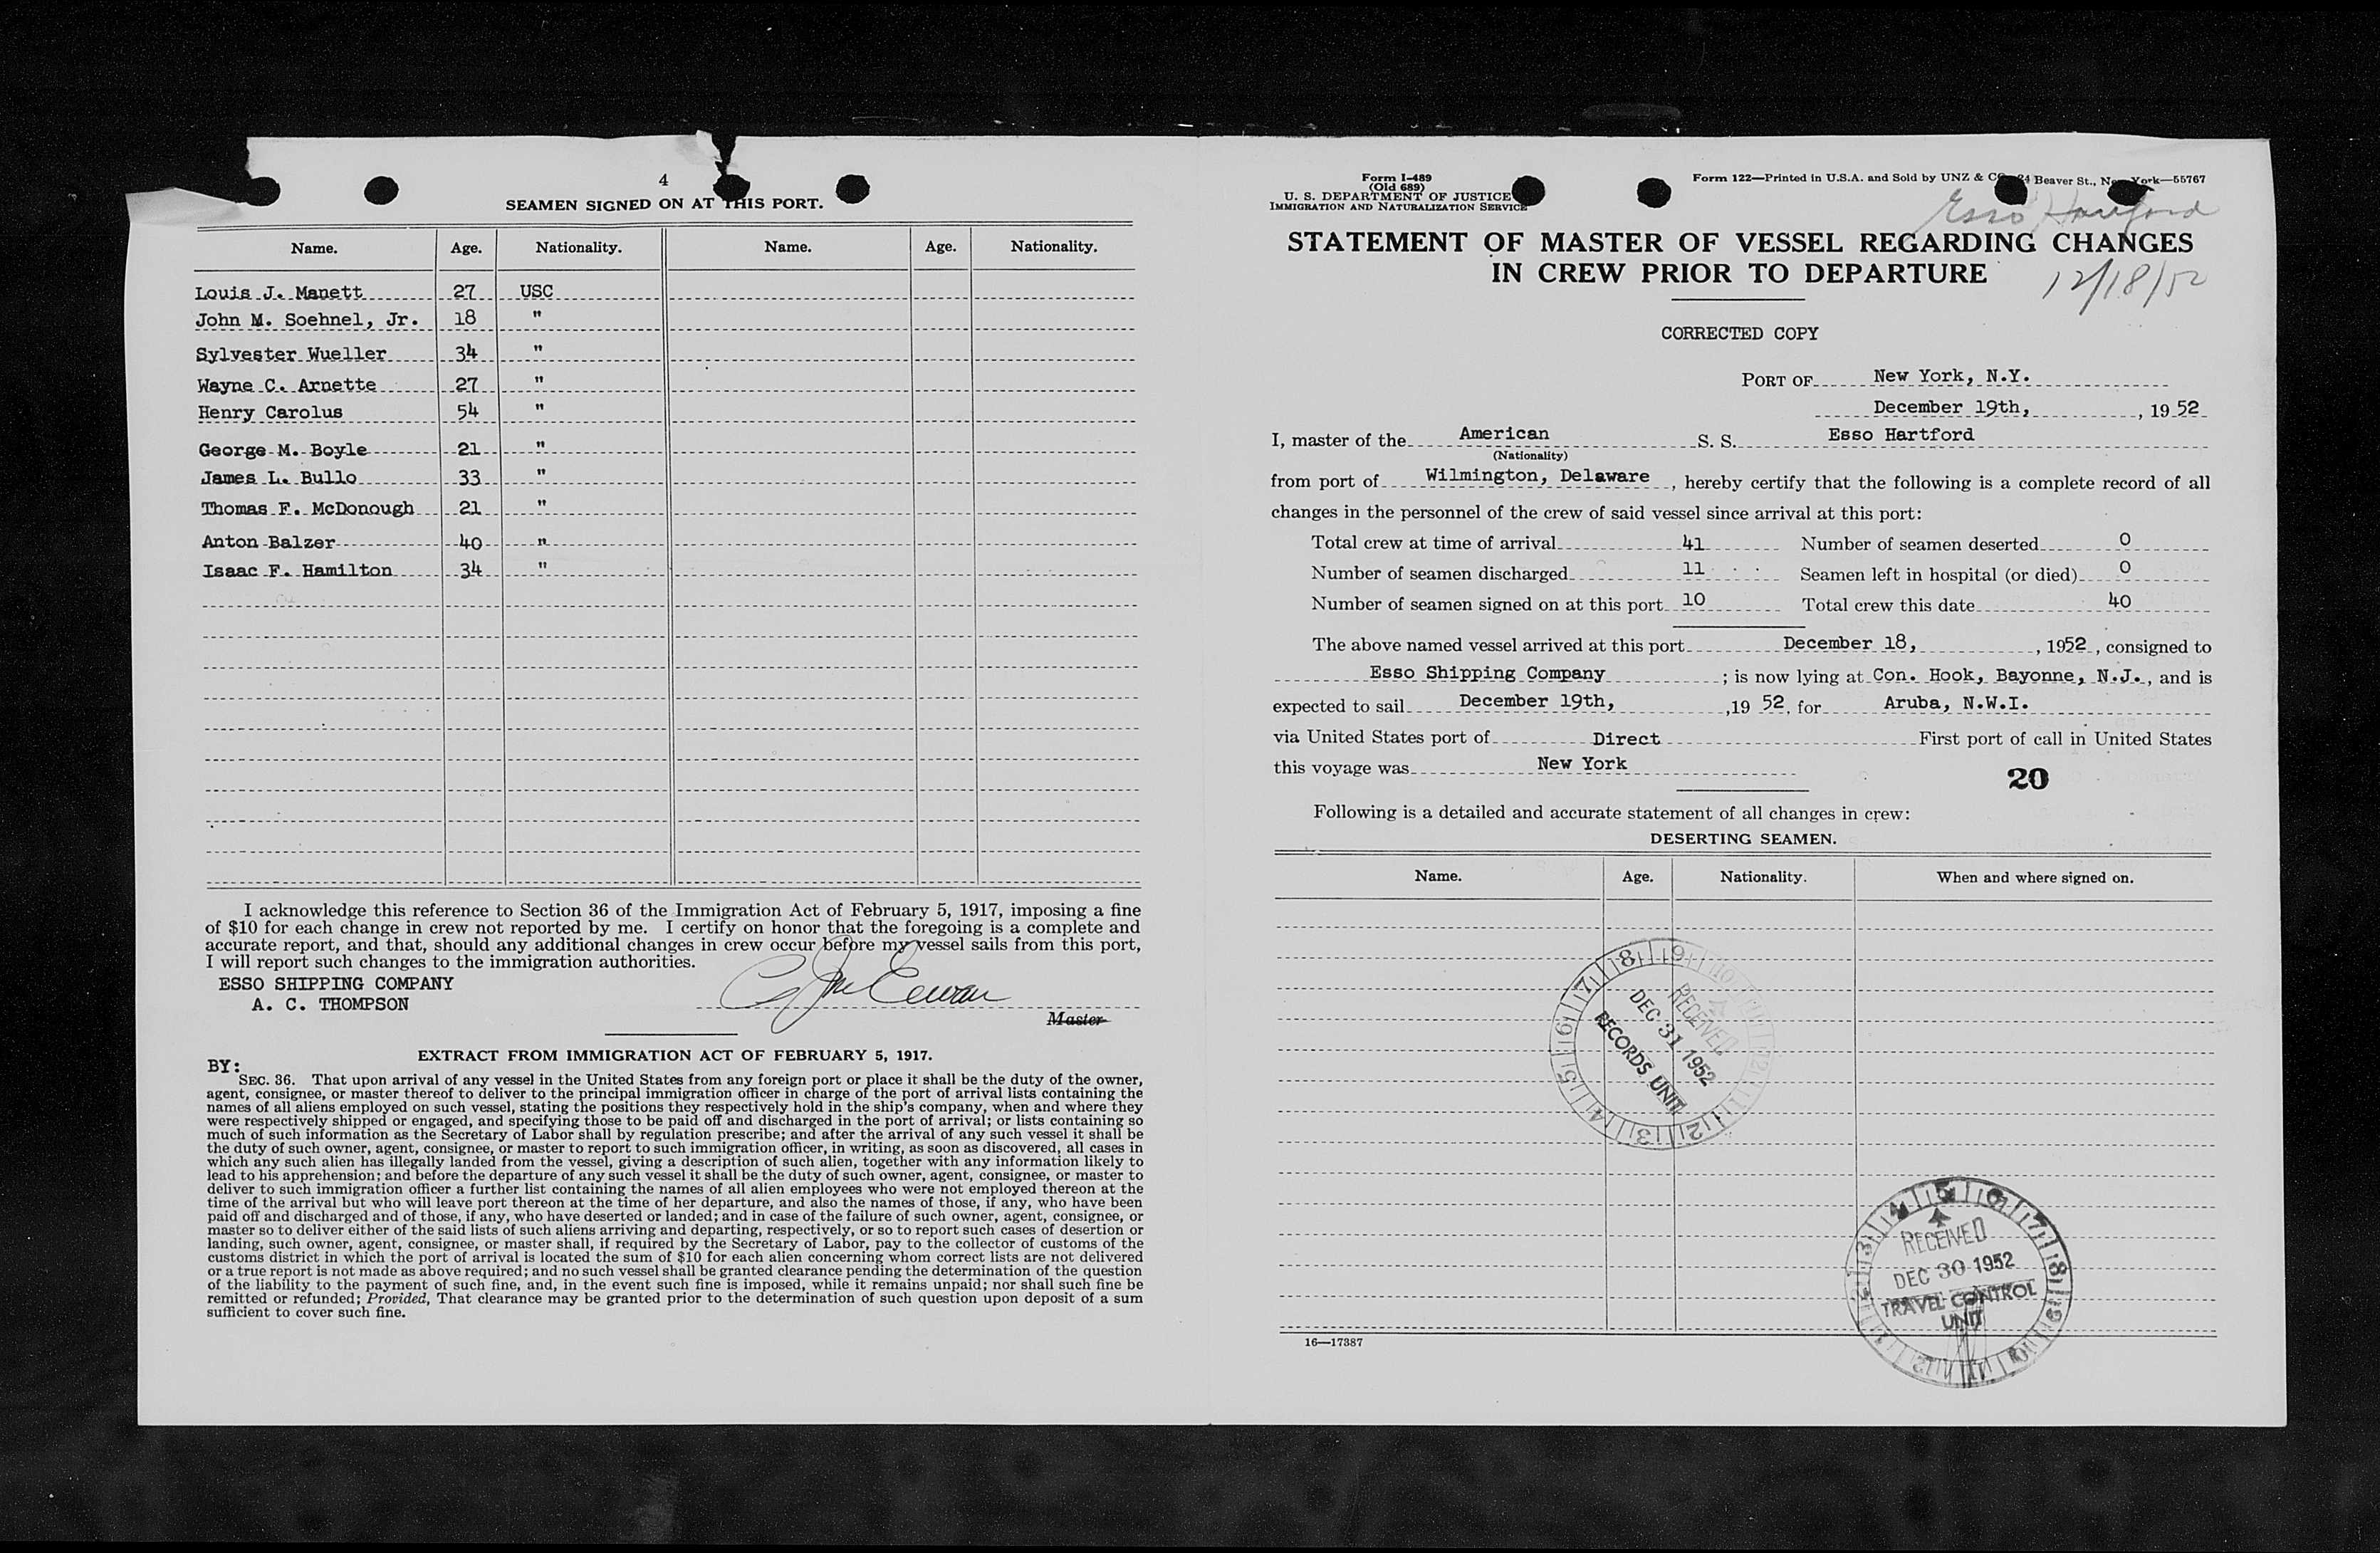 4
SEAMEN SIGNED ON AT THIS PORT.
Name. Age. Nationality. Name. Age. Nationality.
Louis J. Manett 27 USC
John M. Soehnel, Jr. 18 "
Sylvester Wueller 34 "
Wayne C. Arnette 27 "
Henry Carolus 54 "
George M. Boyle 21 "
James L. Bullo 33 "
Thomas F. McDonough 21 "
Anton Balzer 40 "
Isaac F. Hamilton 34 "
I acknowledge this reference to Section 36 of the Immigration Act of February 5, 1917, imposing a fine
of $10 for each change in crew not reported by me. I certify on honor that the foregoing is a complete and
accurate report, and that, should any additional changes in crew occur before my vessel sails from this port,
I will report such changes to the immigration authorities.
ESSO SHIPPING COMPANY
A. C. THOMPSON
Master
EXTRACT FROM IMMIGRATION ACT OF FEBRUARY 5, 1917.
BY:
SEC. 36. That upon arrival of any vessel in the United States from any foreign port or place it shall be the duty of the owner,
agent, consignee, or master thereof to deliver to the principal immigration officer in charge of the port of arrival lists containing the
names of all aliens employed on such vessel, stating the positions they respectively hold in the ship's company, when and where they
were respectively shipped or engaged, and specifying those to be paid off and discharged in the port of arrival; or lists containing so
much of such information as the Secretary of Labor shall by regulation prescribe; and after the arrival of any such vessel it shall be
the duty of such owner, agent, consignee, or master to report to such immigration officer, in writing, as soon as discovered, all cases in
which any such alien has illegally landed from the vessel, giving a description of such alien, together with any information likely to
lead to his apprehension; and before the departure of any such vessel it shall be the duty of such owner, agent, consignee, or master to
deliver to such immigration officer a further list containing the names of all alien employees who were not employed thereon at the
time of the arrival but who will leave port thereon at the time of her departure, and also the names of those, if any, who have been
paid off and discharged and of those, if any, who have deserted or landed; and in case of the failure of such owner, agent, consignee, or
master so to deliver either of the said lists of such aliens arriving and departing, respectively, or so to report such cases of desertion or
landing, such owner, agent, consignee, or master shall, if required by the Secretary of Labor, pay to the collector of customs of the
customs district in which the port of arrival is located the sum of $10 for each alien concerning whom correct lists are not delivered
or a true report is not made as above required; and no such vessel shall be granted clearance pending the determination of the question
of the liability to the payment of such fine, and, in the event such fine is imposed, while it remains unpaid; nor shall such fine be
remitted or refunded; Provided, That clearance may be granted prior to the determination of such question upon deposit of a sum
sufficient to cover such fine.
Form I-489
(Old 689)
U. S. DEPARTMENT OF JUSTICE
IMMIGRATION AND NATURALIZATION SERVICE
Form 122—Printed in U.S.A. and Sold by UNZ & CO. 24 Beaver St., New York—55767
Esso Hartford
STATEMENT OF MASTER OF VESSEL REGARDING CHANGES
IN CREW PRIOR TO DEPARTURE
12/18/52
CORRECTED COPY
PORT OF New York, N.Y.
December 19th, , 19 52
I, master of the American S. S. Esso Hartford
(Nationality)
from port of Wilmington, Delaware , hereby certify that the following is a complete record of all
changes in the personnel of the crew of said vessel since arrival at this port:
Total crew at time of arrival 41 Number of seamen deserted 0
Number of seamen discharged 11 Seamen left in hospital (or died) 0
Number of seamen signed on at this port 10 Total crew this date 40
The above named vessel arrived at this port December 18, , 1952 , consigned to
Esso Shipping Company ; is now lying at Con. Hook, Bayonne, N.J. , and is
expected to sail December 19th, ,19 52, for Aruba, N.W.I.
via United States port of Direct First port of call in United States
this voyage was New York
20
Following is a detailed and accurate statement of all changes in crew:
DESERTING SEAMEN.
Name. Age. Nationality. When and where signed on.
RECEIVED
DEC 31 1952
RECORDS UNIT
RECEIVED
DEC 30 1952
TRAVEL CONTROL
UNIT
16—17387